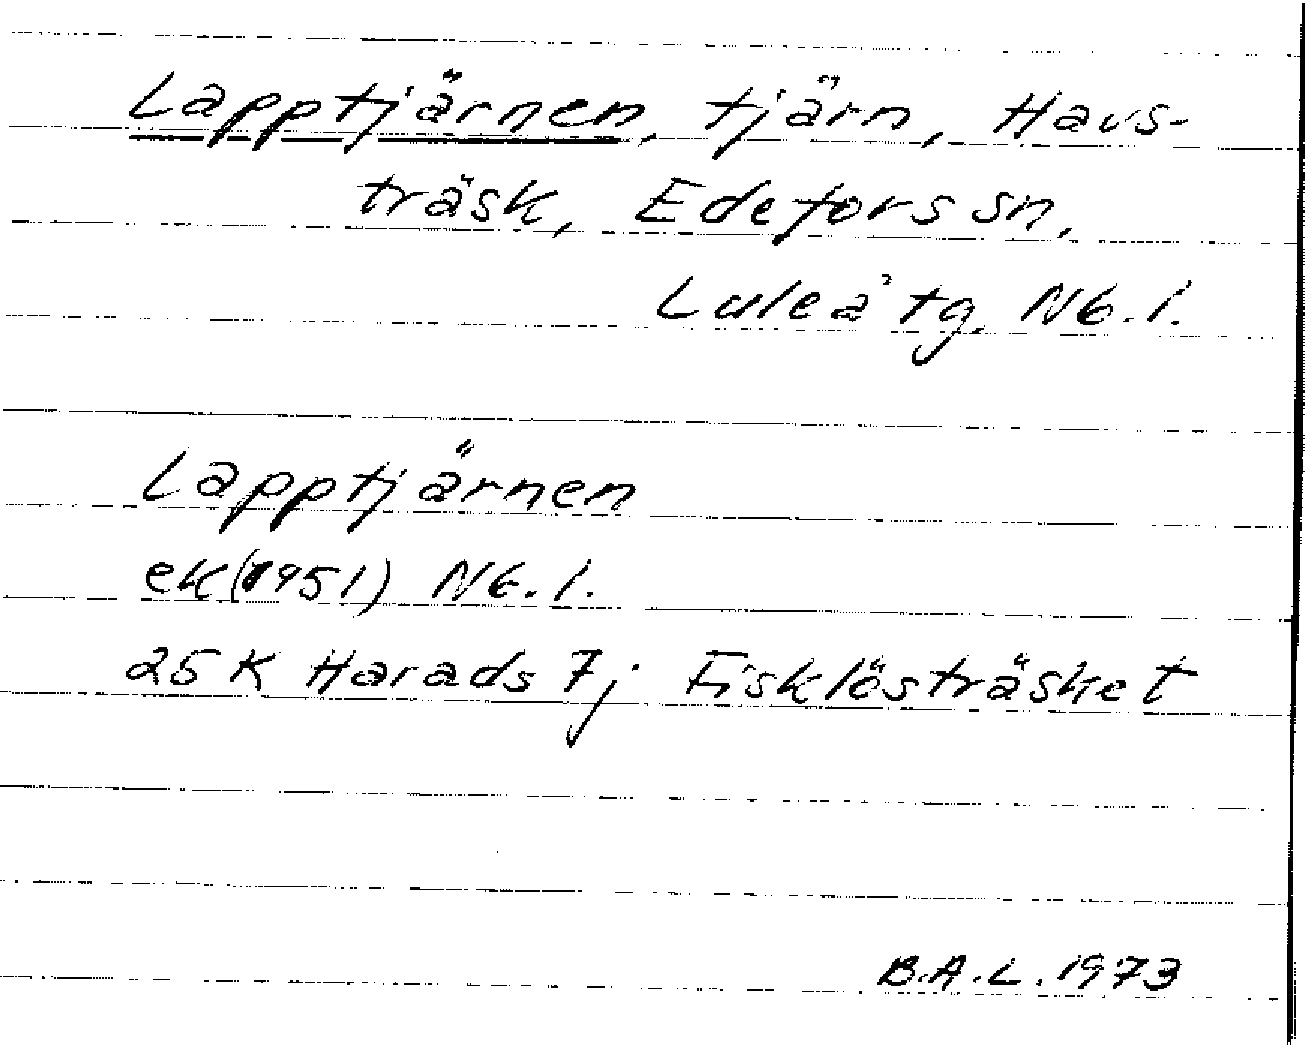 Lapptjärnen, tjärn, Havs-
träsk, Edefors sn,
Luleå tg. Nb. l.
Lapptjärnen
ek(1951) Nb. l.
25 K Harads 7j Fisklösträsket
B.A.L. 1973